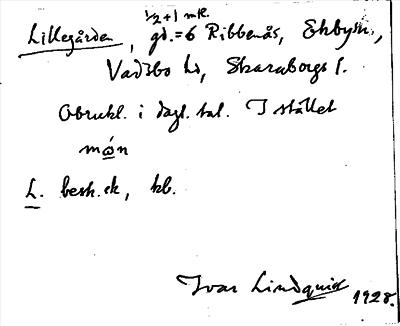 1/2 + 1 mtl.
Lillegården, gd. = 6 Ribbenås, Ekbysn.,
Vadsbo hd, Skaraborgs l.
Obrukl. i dagl. tal. I stället
mån
L. besk. ck, kb.
Ivar Lindquist 1928.